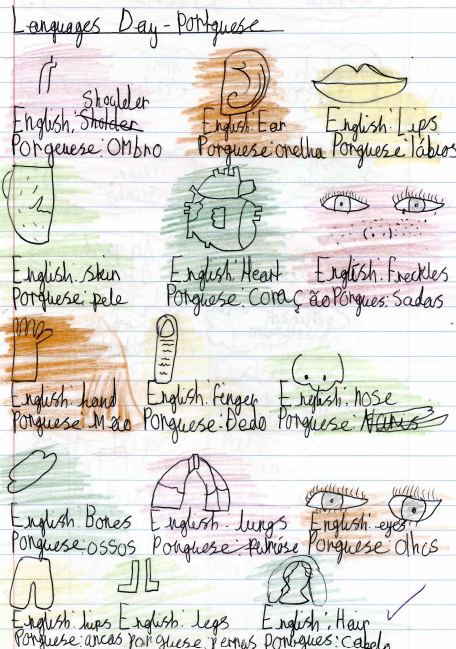 Languages Day - Portguese
Shoulder
English: Sholder English: Ear English: Lips
Porgeuese: OMbro Porguese: orelha Porguese: lábios
English: skin English: Heart English: Freckles
Porguese: pele Porguese: Coração Porgues: Sadas
English: hand English: finger English: nose
Porguese: Mão Porguese: Dedo Porguese:
English: Bones English: lungs English: eyes
Porguese: ossos Porguese: Porguese: Olhos
English: hips English: legs English: Hair
Porguese: ancas Porguese: pernas Portugues: Cabelo